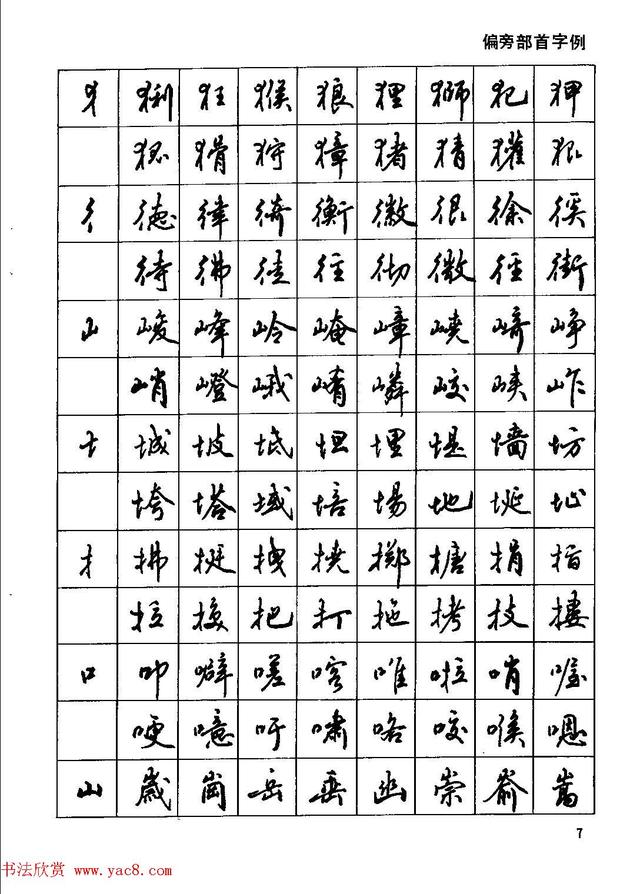 偏旁部首字例
犭 猁 狂 猴 狼 狸 獅 犯 狎
猾 狩 獐 猪 猜 獾 狠
彳 德 律 徛 衡 徽 很 徐 徯
待 彿 徒 往 彻 微 径 街
山 峻 峰 岭 崦 嶂 嶢 崎 峥
峭 嶝 峨 崤 嶙 峧 峡 岞
土 城 坡 坻 坦 埋 堤 墙 坊
垮 塔 域 培 場 地 埏 址
扌 拂 挺 拽 挠 掷 搪 捐 指
拉 接 把 打 拖 拷 技 搂
口 叩 噼 嗟 喀 唯 啦 哨 喔
哽 噫 吁 嘯 咯 咬 喉 嗯
山 歲 崗 岳 幽 崇 嵛 嵩
7
书法欣赏 www.yac8.com